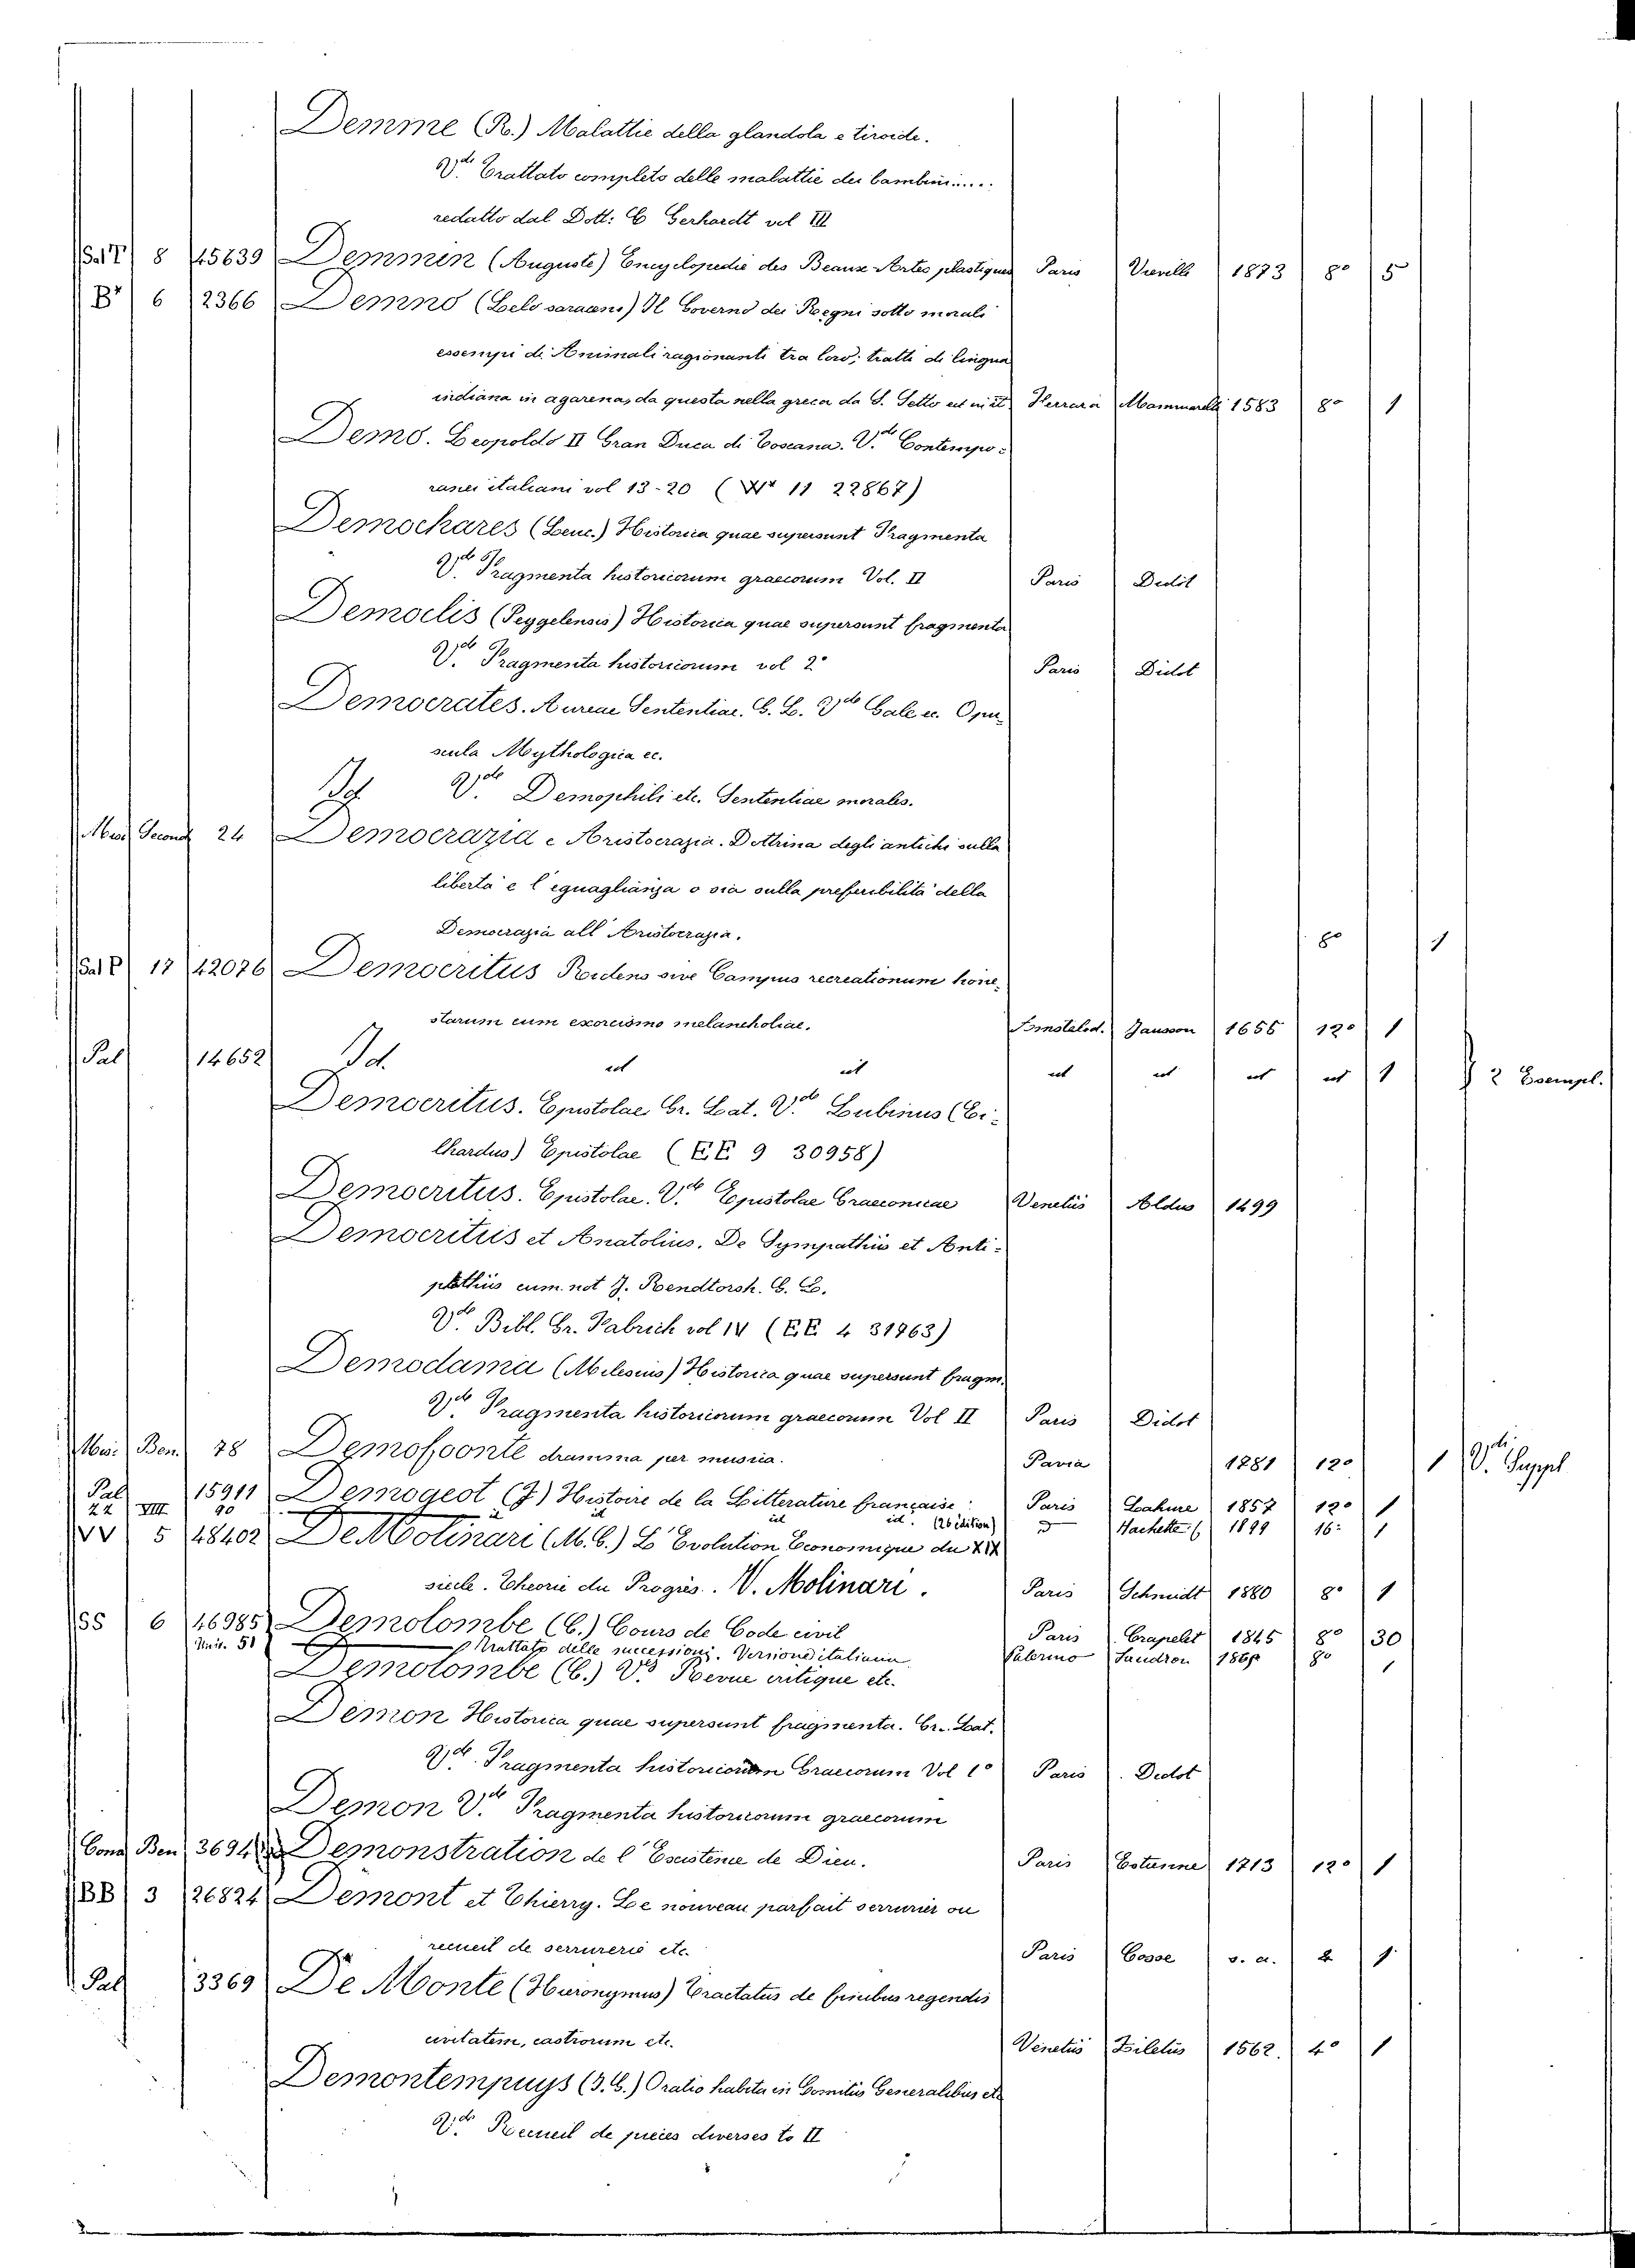 Demme (R.) Malattie della glandola e tiroide.
V.de Trattato completo delle malattie dei bambini.....
redatto dal Dott: C Gerhardt vol III
Sal T 8 45639 Demmin (Auguste) Encyclopedie des Beaux Artes plastiques Paris 1873 8º 5
Bx 6 2366 Demno (Belo saraceno) Il Governo dei Regni sotto morali
essempi di Animali ragionanti tra loro; tratti di lingua
indiana in agarena, da questa nella greca da S. Setto Ferrara Mammarelli 1583 8º 1
Demo. Leopoldo II Gran Duca di Toscana. V.de Contempo=
ranei italiani vol 13-20 (Wx 11 22867)
Demochares (Leuc.) Historica quae supersunt Fragmenta
V.de Fragmenta historicorum graecorum Vol. II Paris Didot
Democlis (Peygelensis) Historica quae supersunt fragmenta
V.de Fragmenta historicorum vol 2º Paris Didot
Democrates. Aureae Sententiae. G. L. V.de Gale ec. Opu-
scula Mythologica ec.
Id V.de Demophili etc. Sententiae morales.
24 Democrazia e Aristocrazia. Dottrina degli antichi sulla
libertà e l'eguaglianza o sia sulla preferibilità della
Democrazia all'Aristocrazia. 8º 1
Sal P 17 42076 Democritus Ridens sive Campus recreationum hone-
starum cum exorcismo melancholiae. Amstelod. Jansson 1655 12º 1
Pal 14652 Id. id id id id id id 1 2 Esempl.
Democritus. Epistolae Gr. Lat. V.de Lubinus (Ei-
lhardus) Epistolae (EE 9 30958)
Democritus. Epistolae. V.de Epistolae Graeconicae Venetiis Aldus 1499
Democritus et Anatolius. De Sympathiis et Anti-
pathiis cum not J. Rendtorsh. G. L.
V.de Bibl. Gr. Fabrich vol IV (EE 4 31963)
Demodama (Milesius) Historica quae supersunt fragm.
V.de Fragmenta historicorum graecorum Vol II Paris Didot
Mus. Ben. 78 Demofoonte dramma per musica. Pavia 1781 12º 1 V.di Suppl
Pal 15911 Demogeot (J.) Histoire de la Litterature française. Paris Lahure 1857 12º 1
22 VIII 90 id id id. (26 édition) Hachette 1899 16: 1
VV 5 48402 De Molinari (M. G.) L'Evolution Economique du XIX
siecle. Theorie du Progrès. V. Molinari. Paris Schmidt 1880 8º 1
SS 6 46985 Demolombe (C.) Cours de Code civil Paris Crapelet 1845 8º 30
51 Trattato delle successioni. Versione italiana Palermo Sandron 8º 1
Demolombe (C.) V.de Revue critique etc.
Demon Historica quae supersunt fragmenta. Gr. Lat.
V.de Fragmenta historicorum Graecorum Vol 1º Paris Didot
Demon V.de Fragmenta historicorum graecorum
Cons Ben 3694 Demonstration de l'Existence de Dieu. Paris Estienne 1713 12º 1
BB 3 26824 Demont et Thierry. Le nouveau parfait serrurier ou
recueil de serrurerie etc. Paris Cosse s. a. 4 1
Pal 3369 De Monte (Hieronymus) Tractatus de finibus regendis
civitatem, castrorum etc. Venetiis Ziletus 1562. 4º 1
Demontempuys (J. G.) Oratio habita in Comitiis Generalibus etc
V.de Recueil de pièces diverses to II